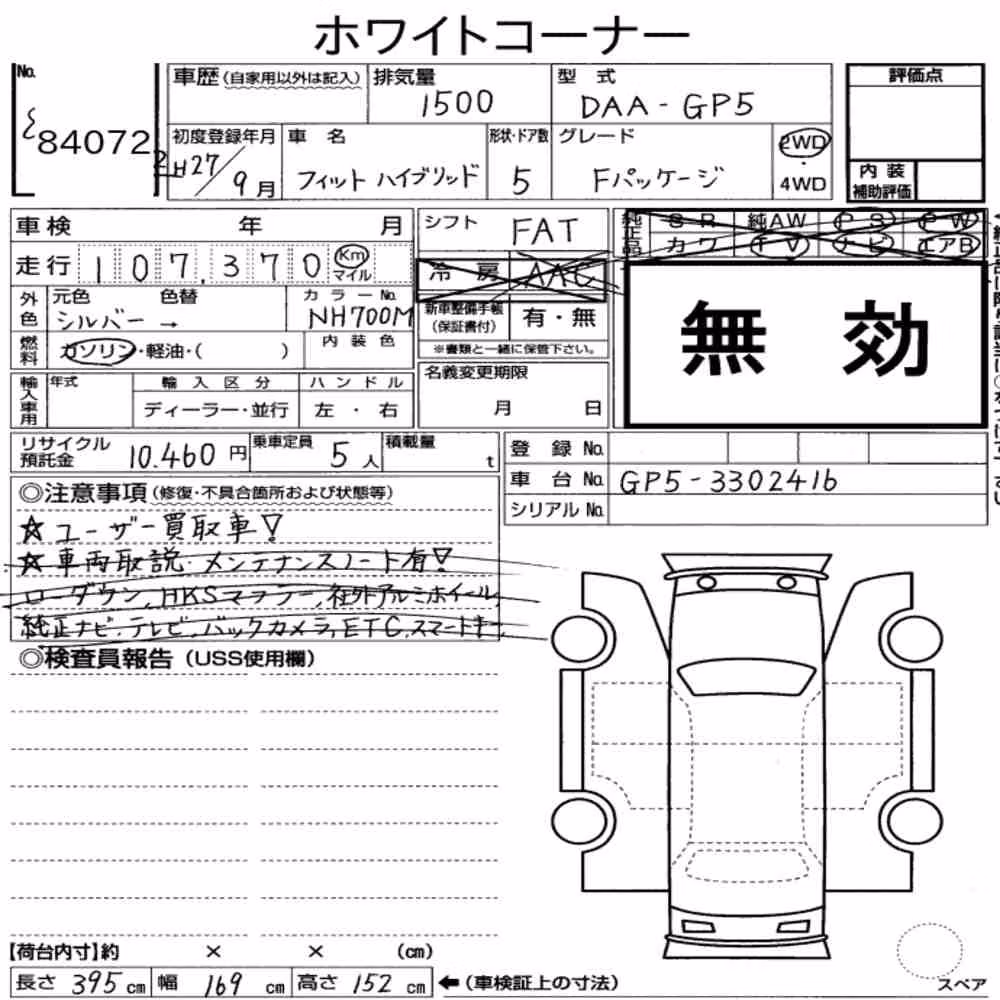 ホワイトコーナー
No.
84072
車歴(自家用以外は記入)
排気量
1500
型 式
DAA-GP5
評価点
初度登録年月
H27/9月
車 名
フィット ハイブリッド
形状・ドア数
5
グレード
Fパッケージ
2WD
・
4WD
内 装
補助評価
車検 年 月
シフト
FAT
純正品
SR 純AW PS PW
カワ TV ナビ エアB
走行 107,370 Km
マイル
冷 房 AAC
外色
元色 色替
シルバー →
カラーNo.
NH700M
新車整備手帳
(保証書付)
有・無
※書類と一緒に保管下さい。
無 効
燃料
ガソリン・軽油・( )
内 装 色
輸入車用
年式
輸 入 区 分
ハ ン ド ル
ディーラー・並行
左 ・ 右
名義変更期限
月 日
リサイクル
預託金
10.460 円
乗車定員
5人
積載量
t
登 録 No.
車 台 No.
GP5-3302416
シリアル No.
◎注意事項(修復・不具合箇所および状態等)
☆ユーザー買取車!
☆車両取説・メンテナンスノート有!
ローダウン,HKSマフラー,社外アルミホイール,
純正ナビ・テレビ,バックカメラ,ETC,スマートキー,
◎検査員報告(USS使用欄)
【荷台内寸】約 × × (cm)
長さ 395 cm 幅 169 cm 高さ 152 cm ←(車検証上の寸法)
スペア